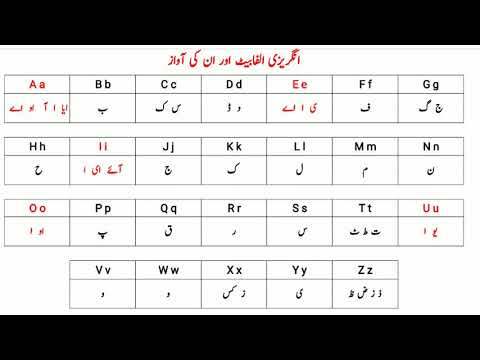 انگریزی الفابیٹ اور ان کی آواز
Aa Bb Cc Dd Ee Ff Gg
ایا ا آ او اے ب س ک د ڈ ی ا اے ف ج گ
Hh Ii Jj Kk Ll Mm Nn
ح آئے ای ا ج ک ل م ن
Oo Pp Qq Rr Ss Tt Uu
او ا پ ق ر س ت ط ٹ یو ا
Vv Ww Xx Yy Zz
و و ز کس ی ذ ز ض ظ